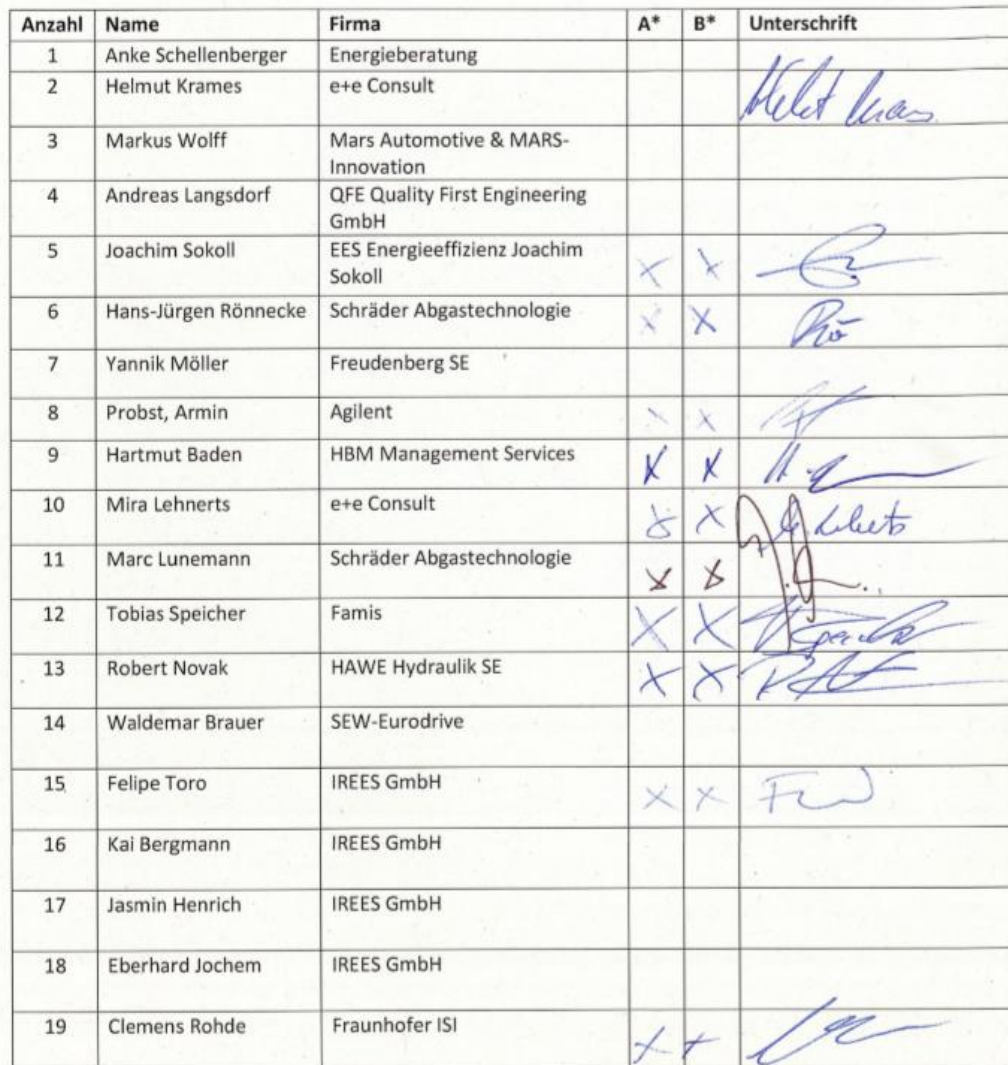 Anzahl Name Firma A* B* Unterschrift
1 Anke Schellenberger Energieberatung
2 Helmut Krames e+e Consult
3 Markus Wolff Mars Automotive & MARS-
Innovation
4 Andreas Langsdorf QFE Quality First Engineering
GmbH
5 Joachim Sokoll EES Energieeffizienz Joachim X X
Sokoll
6 Hans-Jürgen Rönnecke Schräder Abgastechnologie X X Rö
7 Yannik Möller Freudenberg SE
8 Probst, Armin Agilent X X
9 Hartmut Baden HBM Management Services X X
10 Mira Lehnerts e+e Consult X X
11 Marc Lunemann Schräder Abgastechnologie X X
12 Tobias Speicher Famis X X
13 Robert Novak HAWE Hydraulik SE X X
14 Waldemar Brauer SEW-Eurodrive
15 Felipe Toro IREES GmbH X X
16 Kai Bergmann IREES GmbH
17 Jasmin Henrich IREES GmbH
18 Eberhard Jochem IREES GmbH
19 Clemens Rohde Fraunhofer ISI X X